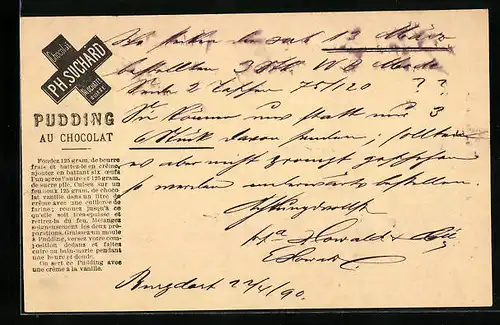 Chocolat
PH. SUCHARD
NEUCHATEL
SUISSE
PUDDING
AU CHOCOLAT
Fondez 125 gram. de beurre
frais et battez-le en crème,
ajoutez en battant six œufs
l'un après l'autre et 125 gram.
de sucre pilé. Cuisez sur un
feu doux 125 gram. de choco
lat vanille dans un litre de
crème avec une cuillerée de
farine; remuez jusqu'à ce
qu'elle soit très-épaisse et
retirez-la du feu. Mélangez
soigneusement les deux pré-
parations. Graissez un moule
à Pudding, versez votre com-
position dedans et faites
cuire au bain-marie pendant
une heure et demie.
On sert ce Pudding avec
une crème à la vanille.
Wo stecken die seit 13 März
bestellten 3
2 75/120 ? ?
Sie können uns statt nur 3
6 Stück davon senden; sollten
es aber nicht prompt geschehen
so werden anderwärts bestellen.
Achtungsvollst
Howald & Cie
Howald
Burgdorf 22/4/90.